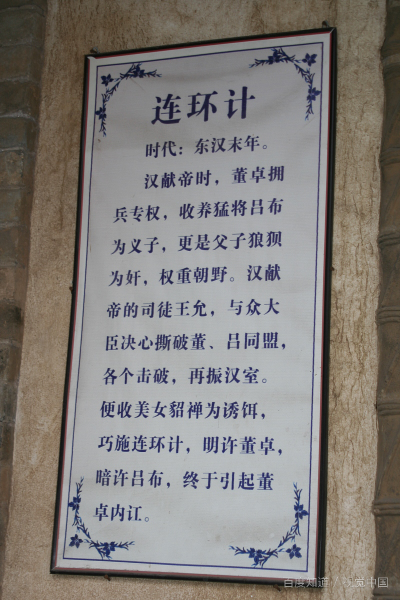 连环计
时代：东汉末年。
汉献帝时，董卓拥
兵专权，收养猛将吕布
为义子，更是父子狼狈
为奸，权重朝野。汉献
帝的司徒王允，与众大
臣决心撕破董、吕同盟，
各个击破，再振汉室。
便收美女貂禅为诱饵，
巧施连环计，明许董卓，
暗许吕布，终于引起董
卓内讧。
百度知道 / 视觉中国